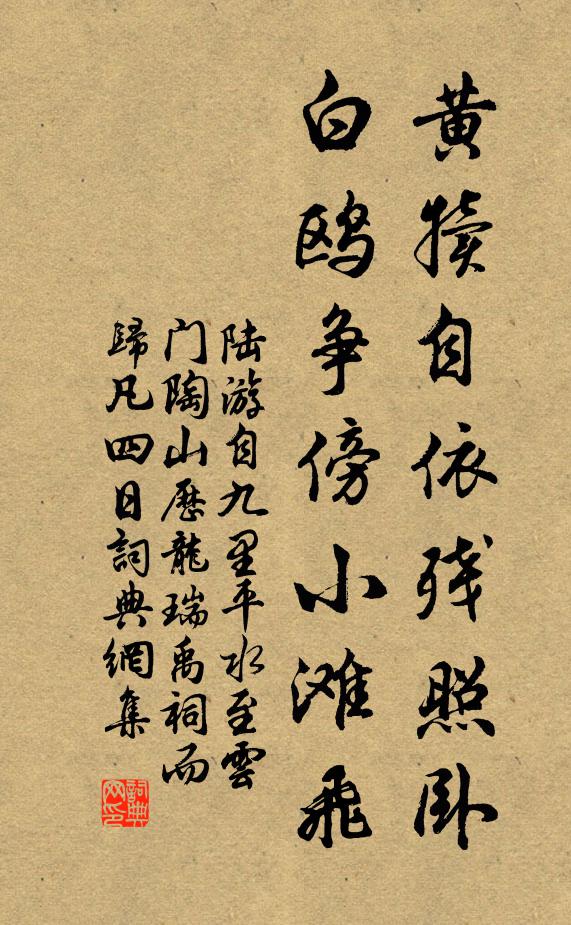 黄犊自依残照卧
白鸥争傍小滩飞
陆游自九里平水至雲
门陶山歷龍瑞禹祠而
歸凡四日詞典網集
詞典
网印